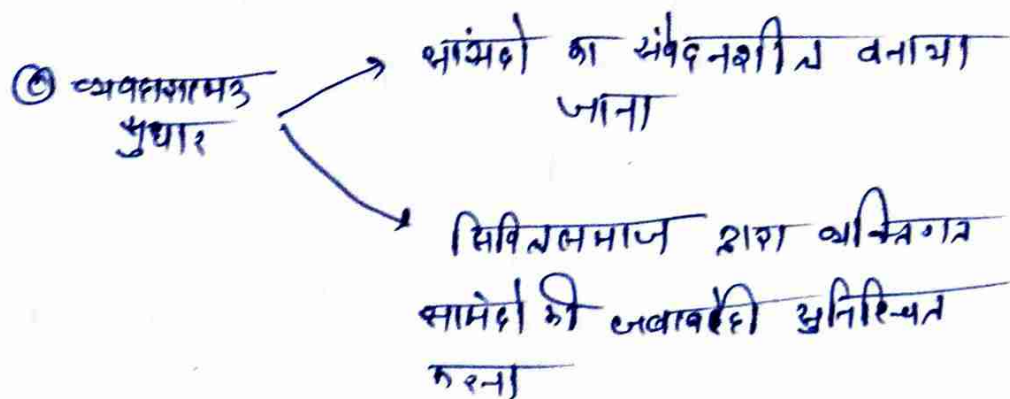 © व्यवहारात्मक
सुधार
सांसदो का संवेदनशील बनाया
जाना
सिविल समाज द्वारा व्यक्तिगत
सांसदो की जवाबदेही सुनिश्चित
करना